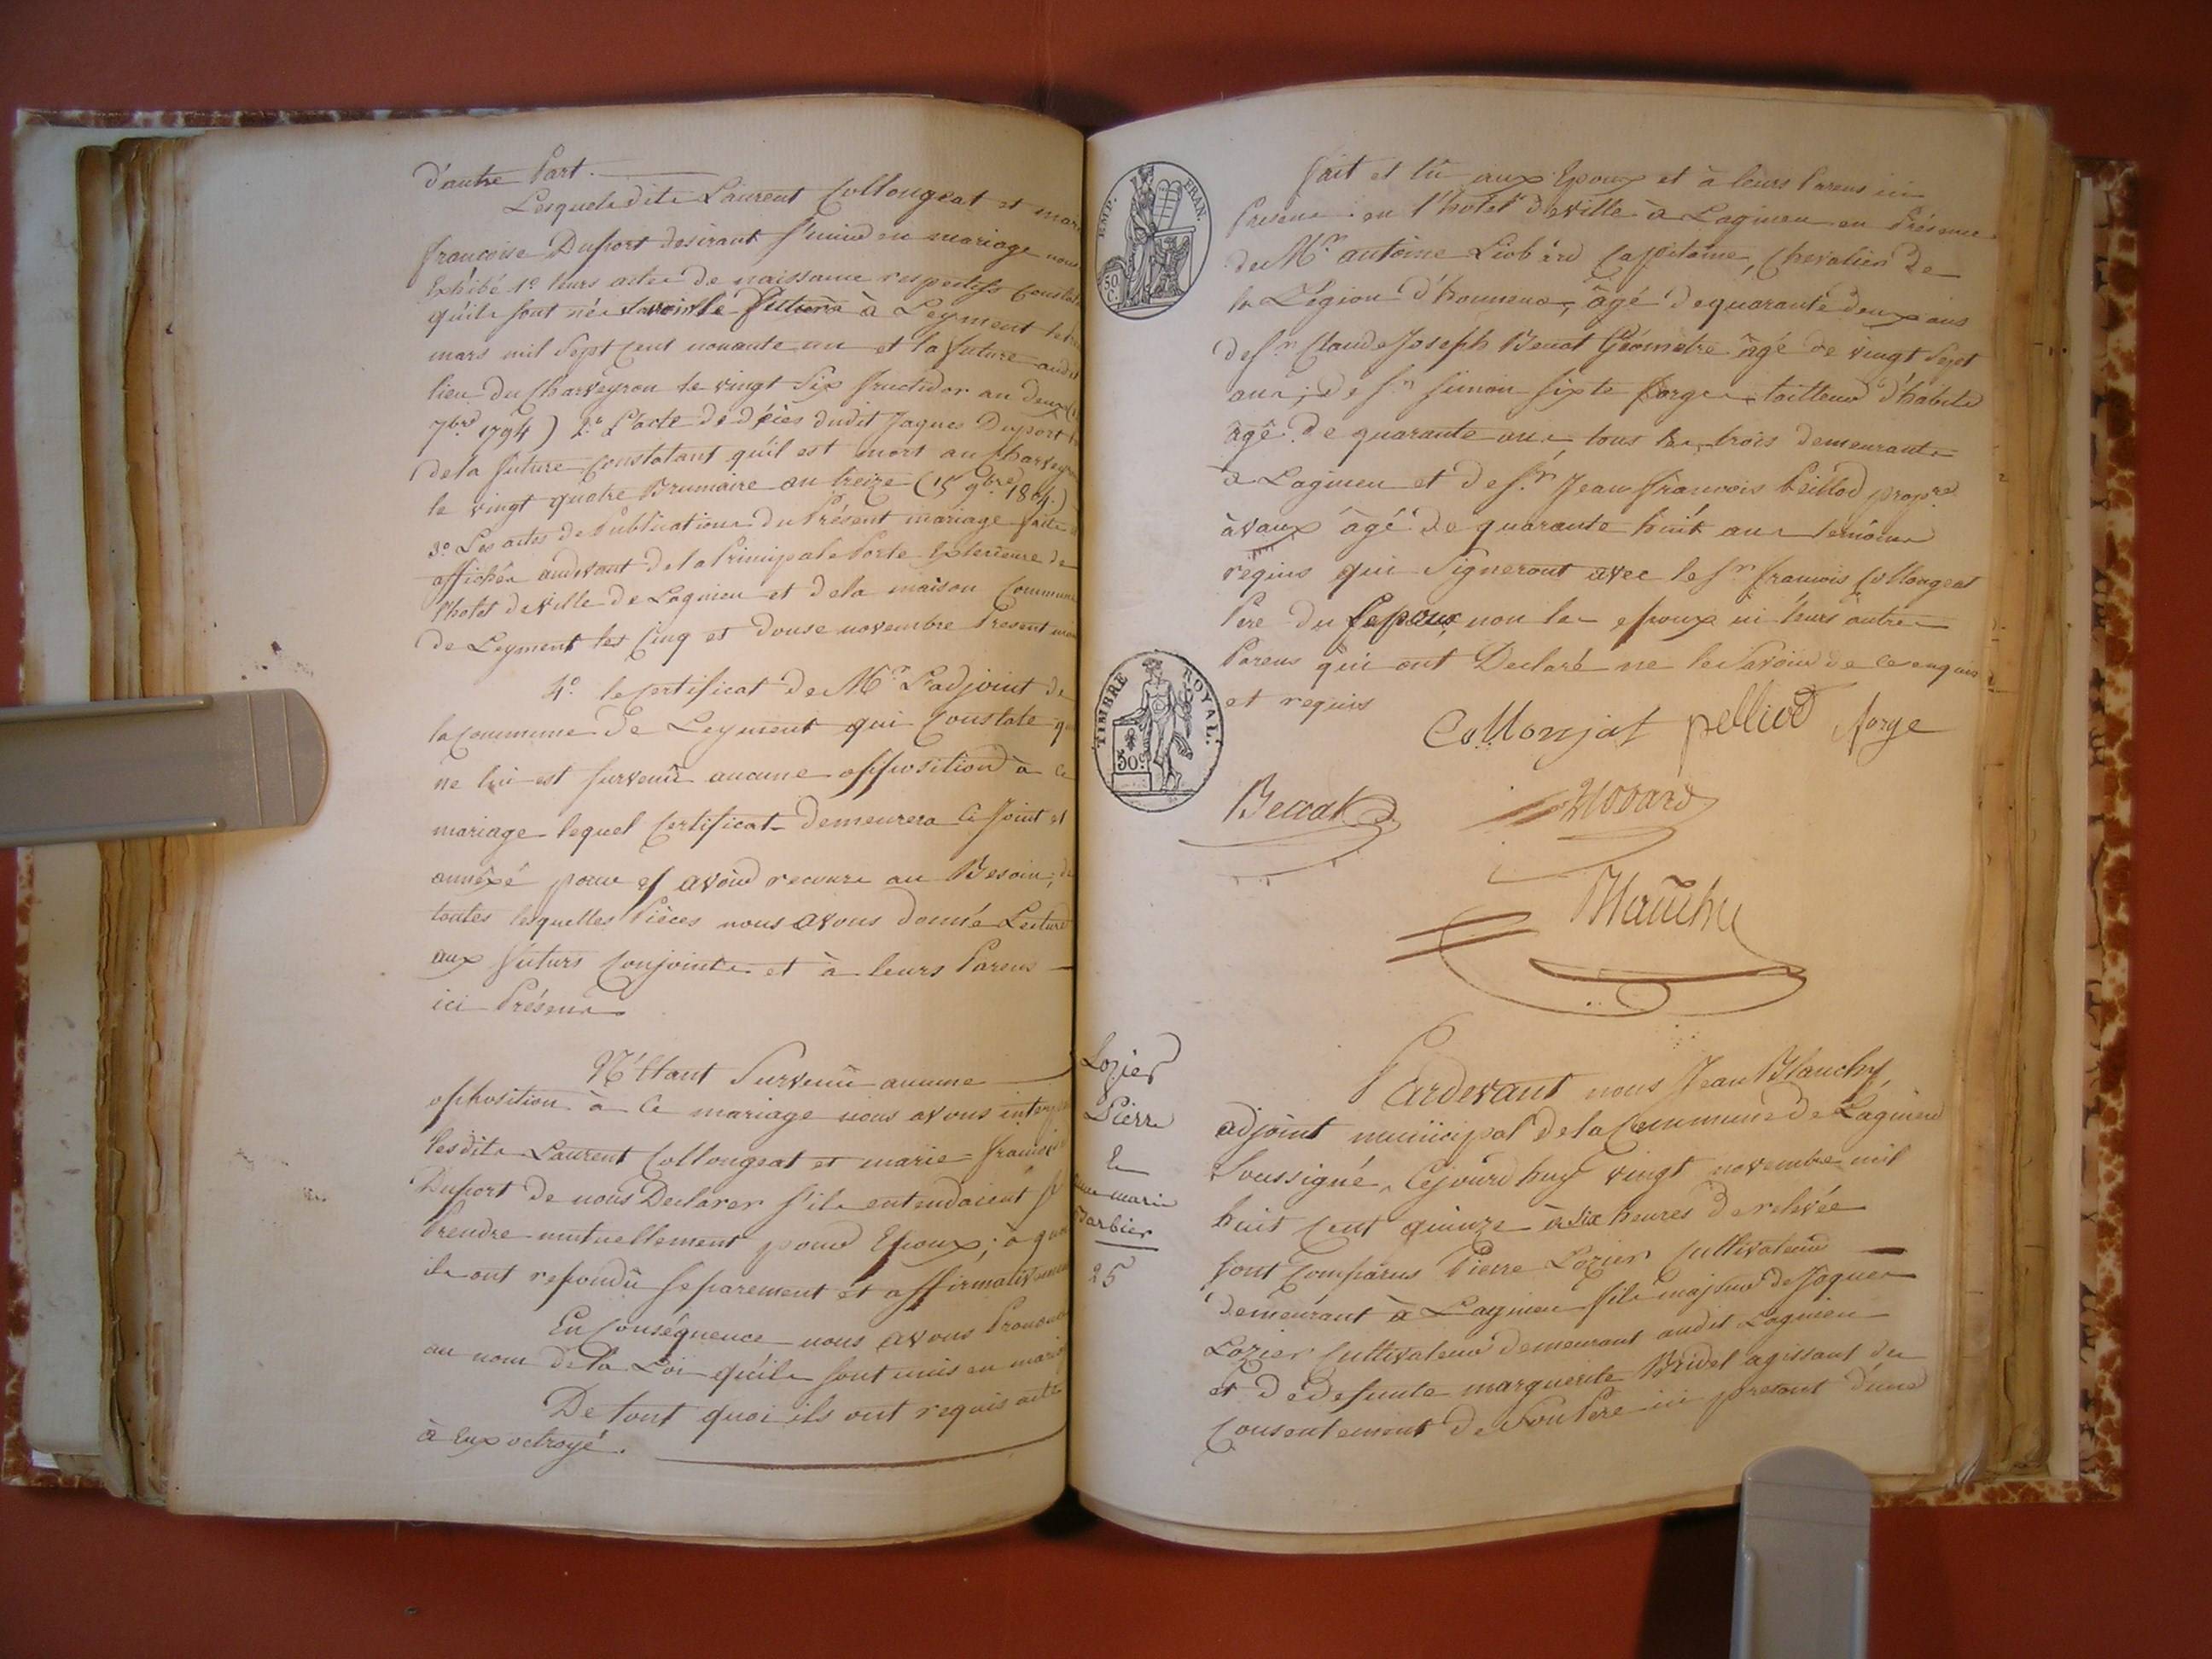 d'autre Part.
Lesquels dits Laurent Collongeat et marie
francoise Duport desirant s'unir en mariage nous
Exhibé 1º leurs actes de naissance respectifs Constatant
qu'ils sont nés savoir le futur à Leyment le
mars mil Sept Cent nonante un et la future audit
lieu du Charveyron le vingt Six fructidor an deux
7bre 1794) 2º L'acte de décès dudit Jaques Duport
de la future Constatant qu'il est mort au Charveyron
le vingt quatre Brumaire an treize (15 9bre 1804.)
3º Les actes de Publications du Présent mariage faites
affichés audevant de la Principale Porte Exterieure de
l'hotel de Ville de Lagnieu et de la maison Commune
de Leyment les Cinq et Douse novembre Present mois
4º le Certificat de Mr L'adjoint de
la Commune de Leyment qui Constate que
ne lui est survenüe aucune opposition à ce
mariage lequel Certificat demeurera Ci Joint et
annéxé pour y avoir recours au Besoin; de
toutes lesquelles Pièces nous avons donné Lecture
aux futurs Conjoints et à leurs Parens
ici Présens
N'Etant Survenüe aucune
opposition à Ce mariage nous avons
lesdits Laurent Collongeat et marie francoise
Duport de nous Declarer s'ils entendaient se
Prendre mutuellement pour Epoux; à quoi
ils ont repondû separement et affirmativement
En Conséquence nous avons Prononcé
au nom de la Loi qu'ils sont unis en mariage
De tout quoi ils ont requis acte
à Eux octroyé.
EMP. FRAN.
50 C.
fait et lû aux Epoux et à leurs Parens ici
Presens en l'hotel de ville à Lagnieu en Présence
de Mr antoine Liobard Capitaine, Chevalier de
la Légion d'honneur, âgé de quarante deux ans
de Sr Claude Joseph Benat Géometre âgé de vingt Sept
ans; de Sr simon sixte forge tailleur d'habits
âgé de quarante ans tous les trois demeurants
à Lagnieu et de Sr Jean francois Peillod propre
à vaux âgé de quarante huit ans temoins
requis qui Signeront avec le Sr francois Collongeat
Pere du Lepoux non les epoux ni leurs autres
Parens qui ont Declaré ne le Savoir de ce enquis
et requis
TIMBRE ROYAL.
50c
Collonjat pelliod forge
Benat Liobard
Blanchy
Lozier
Pierre
Et
marie
Barbier
25
Pardevant nous Jean Blanchy
adjoint municipal de la Commune de Lagnieu
Soussigné, Cejourd'huy vingt novembre mil
huit Cent quinze à six heures de relevée
sont Comparus Pierre Lozier Cultivateur
demeurant à Lagnieu fils majeur de Jaques
Lozier Cultivateur demeurant audit Lagnieu
et de defunte marguerite Bridet agissant du
Consentement de Son Pere ici present d'une